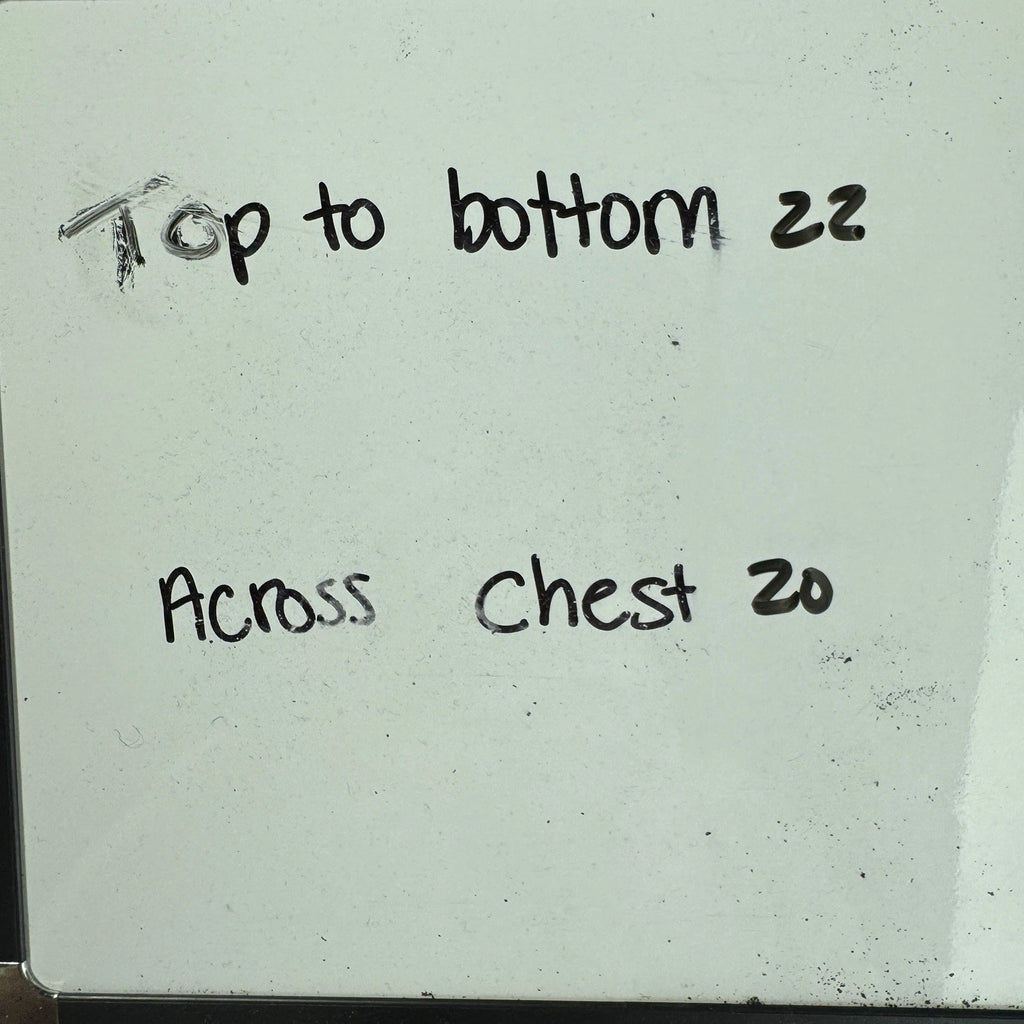 Top to bottom 22
Across Chest 20